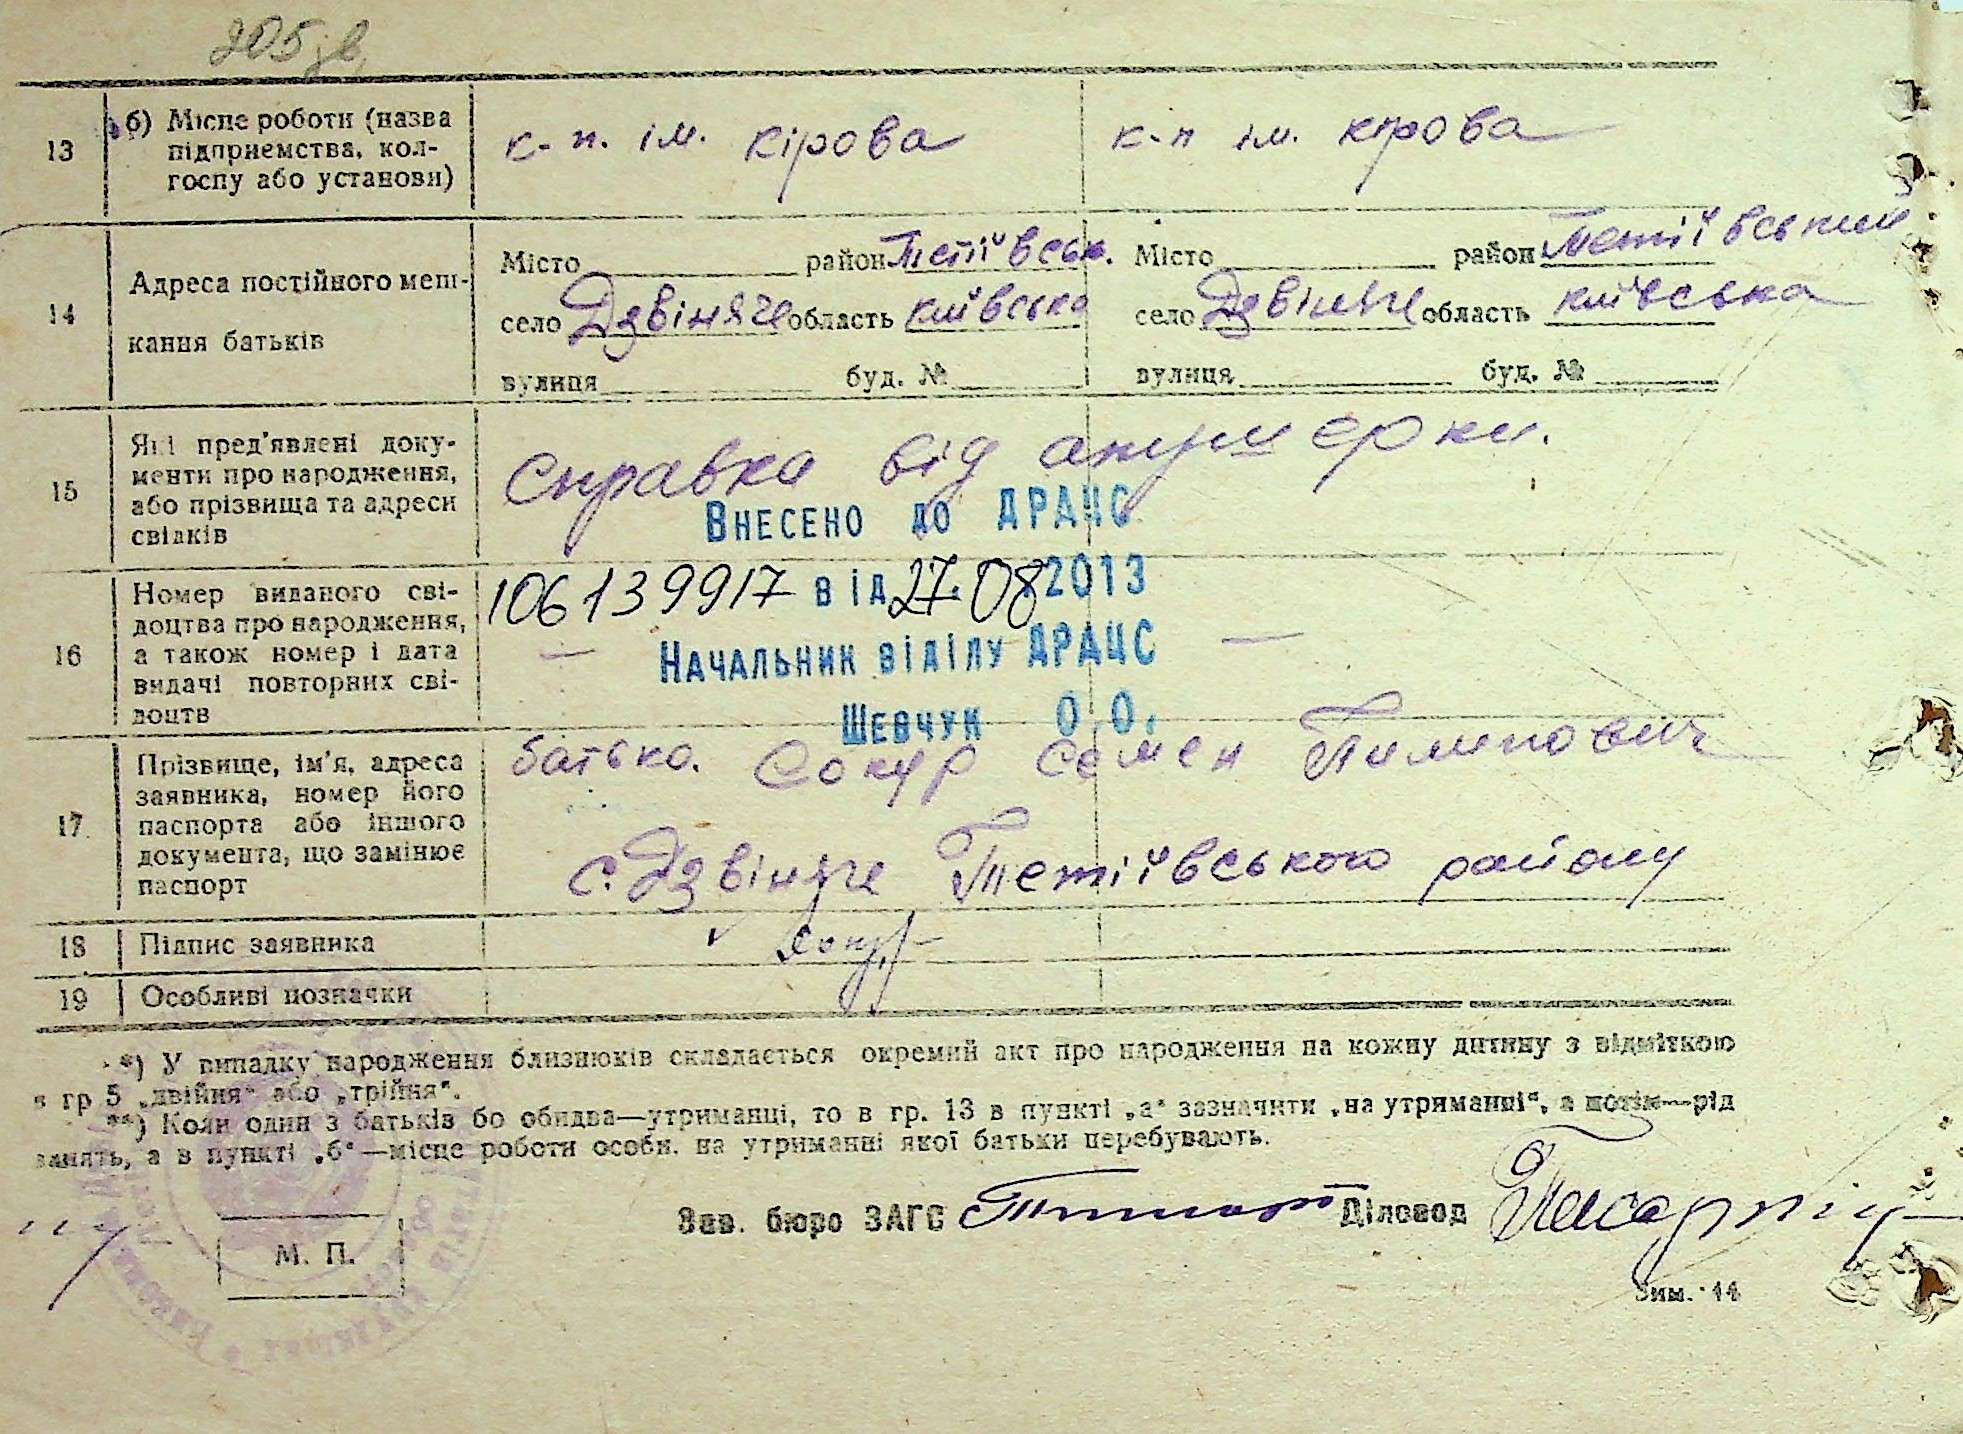 205 зв
13
б) Місце роботи (назва
підприємства, кол-
госпу або установи)
к-п. ім. Кірова
к-п ім. Кірова
14
Адреса постійного меш-
кання батьків
Місто район Тетіївськ.
село Дзвіняче область Київська
вулиця буд. №
Місто район Тетіївський
село Дзвіняче область Київська
вулиця буд. №
15
Які пред'явлені доку-
менти про народження,
або прізвища та адреси
свідків
Справка від акушерки.
Внесено до ДРАЦС
16
Номер виданого сві-
доцтва про народження,
а також номер і дата
видачі повторних сві-
доцтв
106139917 від 27.08 2013
Начальник віділу ДРАЦС
Шевчук О.О.
17
Прізвище, ім'я, адреса
заявника, номер його
паспорта або іншого
документа, що замінює
паспорт
батько. Сокур Семен Пилипович
с. Дзвіняче Тетіївського району
18
Підпис заявника
Сокур
19
Особливі позначки
*) У випадку народження близнюків складається окремий акт про народження на кожну дитину з відміткою
в гр 5 „двійня“ або „трійня“.
**) Коли один з батьків бо обидва—утриманці, то в гр. 13 в пункті „а“ зазначити „на утриманні“, а потім—рід
занять, а в пункті „б“—місце роботи особи, на утриманні якої батьки перебувають.
Зав. бюро ЗАГС
Діловод
М. П.
Зим. 14